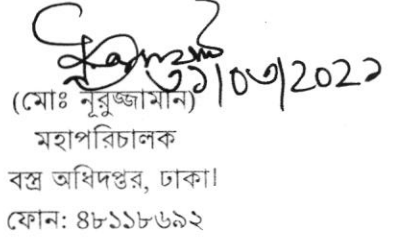 ৩১/০৩/২০২১
(মোঃ নূরুজ্জামান)
মহাপরিচালক
বস্ত্র অধিদপ্তর, ঢাকা।
ফোন: ৪৮১১৮৬৯২